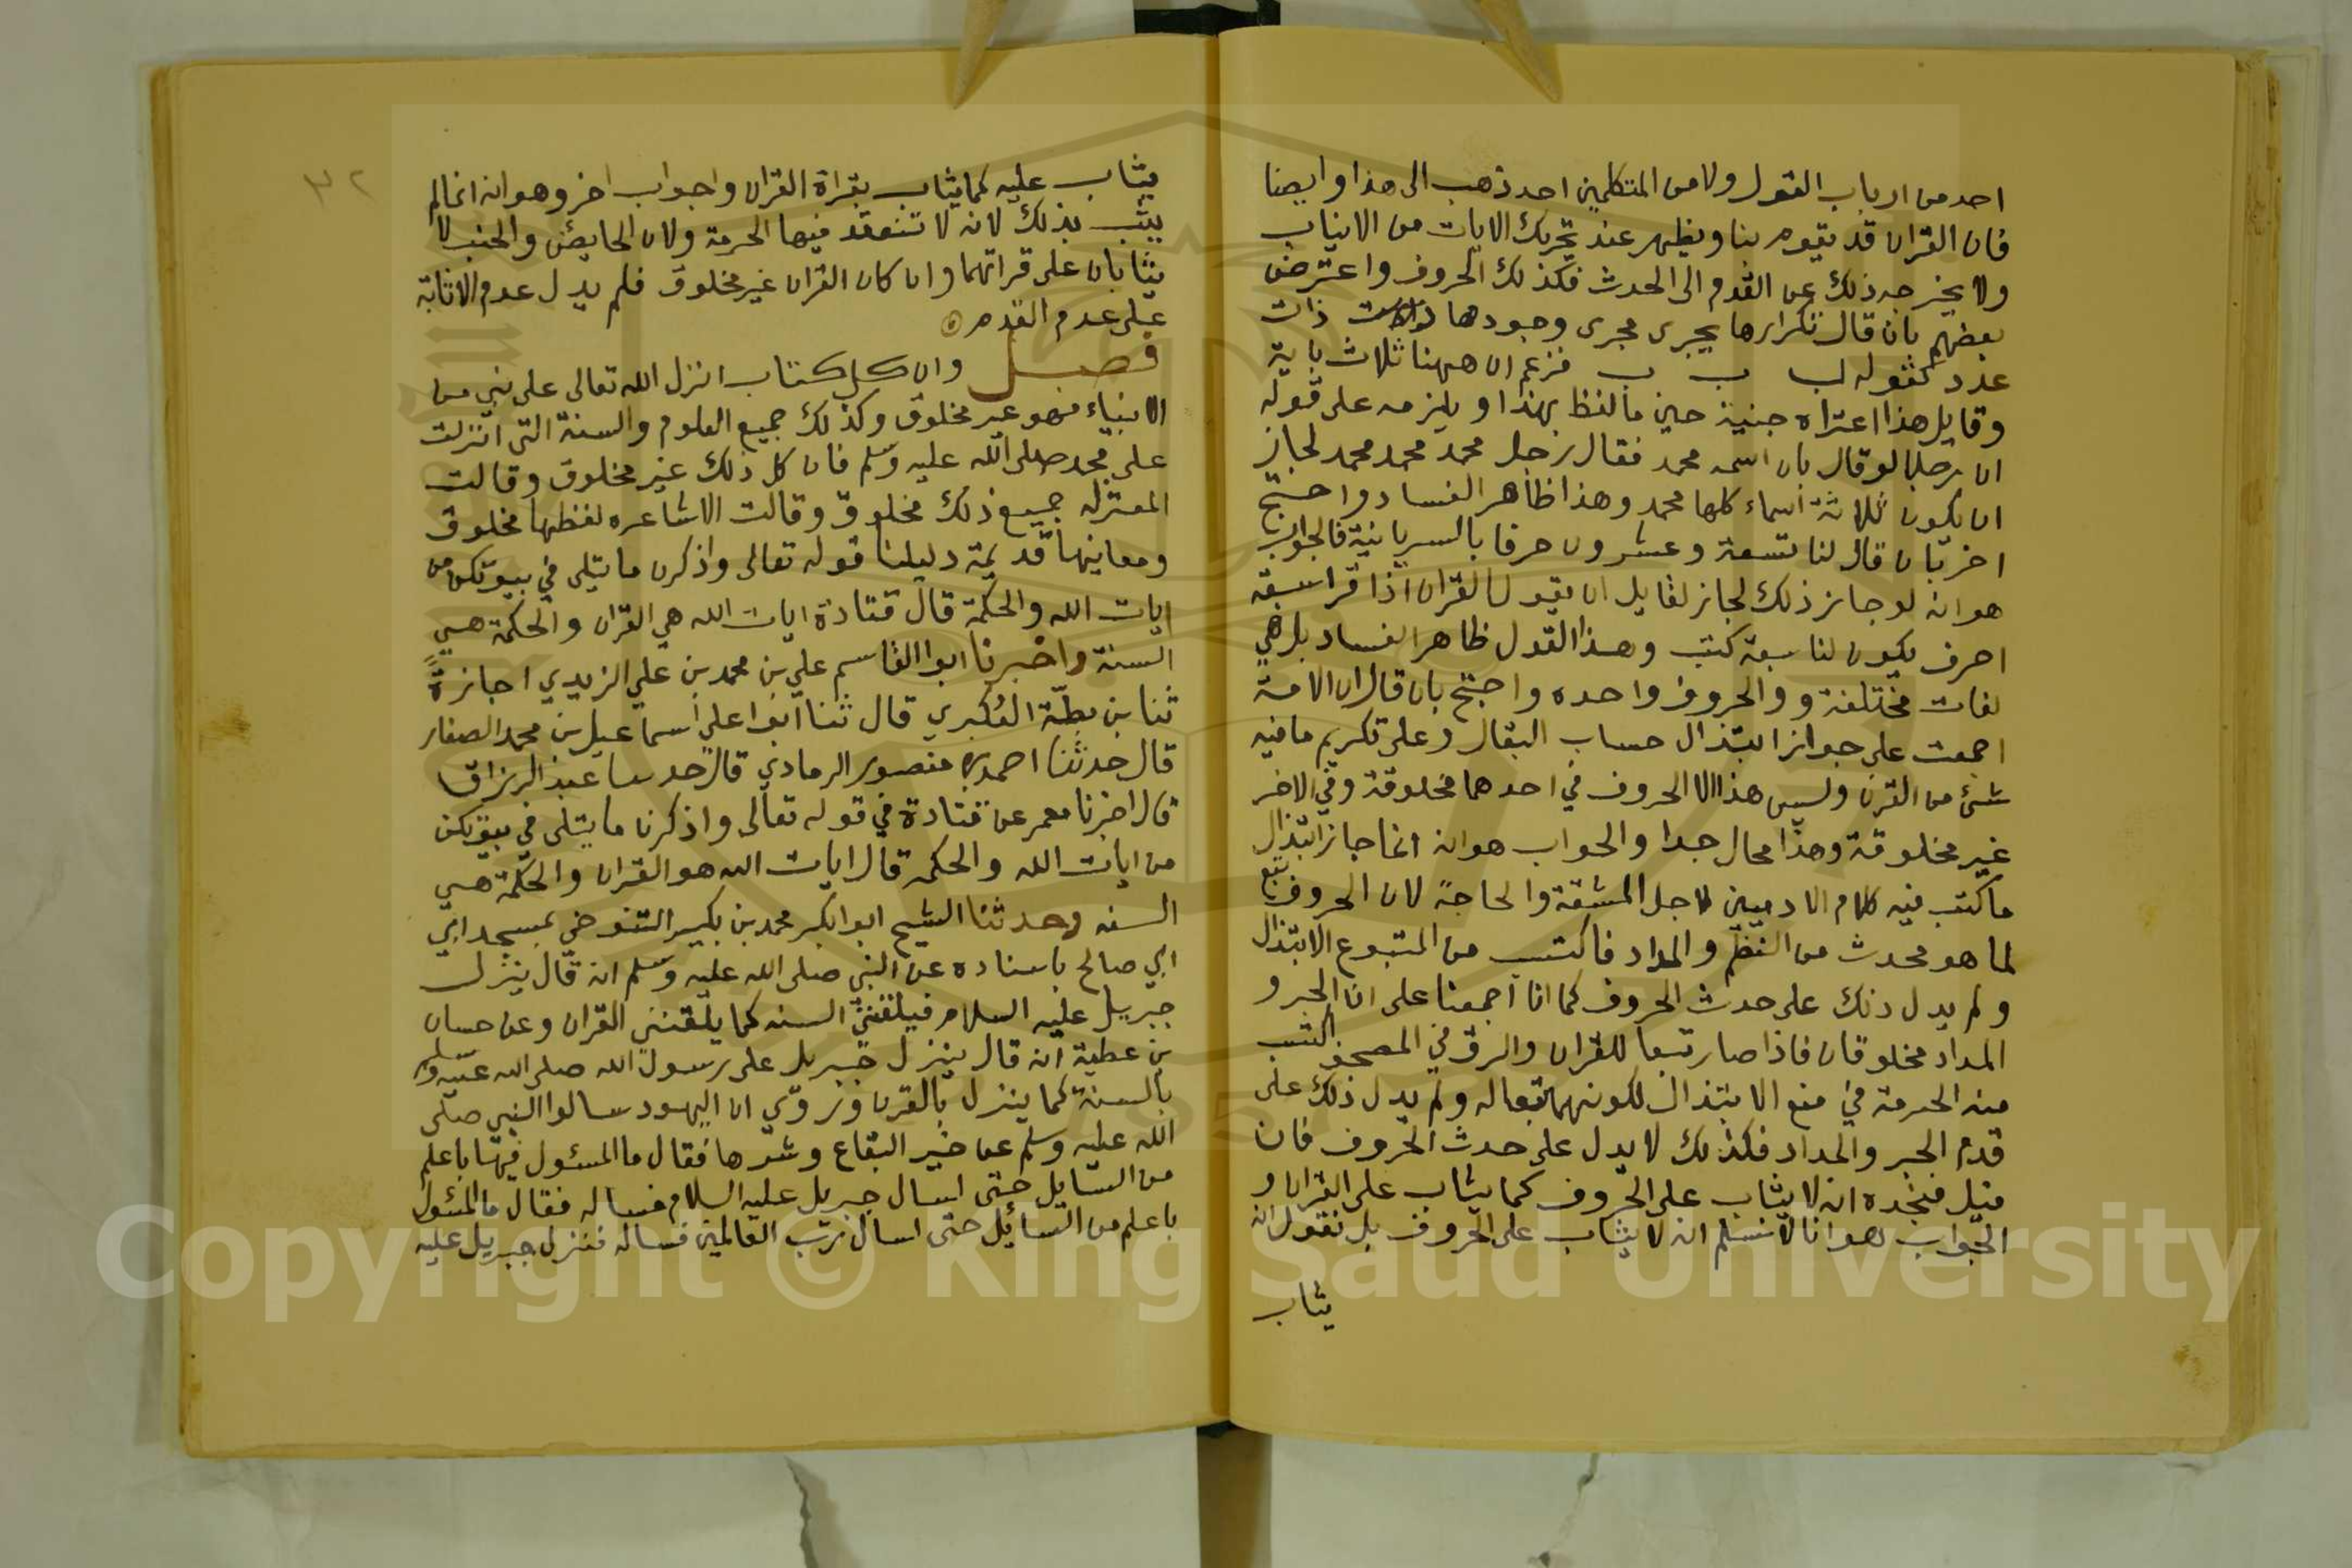 احد من ارباب القول ولا من المتكلمين احد ذهب الى هذا وايضا
فان القران قد يقوم بنا ويظهر عند تحريك الالات من الانياب
ولا يخرجه ذلك عن القدم الى الحدث فكذلك الحروف واعترض
بعضهم بان قال تكرارها يجرى مجرى وجودها ذات
عدد كقوله ب ب ب فزعم ان ههنا ثلاث باية
وقايل هذا اعتراه جنية حين مالفظ بهذا ويلزمه على قوله
ان رجلا لو قال بان اسمه محمد فقال رجل محمد محمد محمد لجاز
ان يكون ثلاثة اسماء كلها محمد وهذا ظاهر الفساد واحتج
اخر بان قال لنا تسعة وعشرون حرفا بالسريانية فالجواب
هو انه لو جاز ذلك لجاز لقايل ان يقول القران اذا قرا سبعة
احرف يكون لنا سبعة كتب وهذا القول ظاهر الفساد بل هي
لغات مختلفة و والحروف واحده واحتج بان قال ان الامة
اجمعت على جواز ابتذال حساب البقال وعلى تكريم ما فيه
شئ من القرن وليس هذا الا الحروف في احدهما مخلوقة وفي الاخر
غير مخلوقة وهذا محال جدا والجواب هو انه انما جاز ابتذال
ما كتب فيه كلام الادميين لاجل المشقة والحاجة لان الحروف تبع
لما هو محدث من النظم والمداد فاكتسب من المتبوع الابتذال
ولم يدل ذلك على حدث الحروف كما انا اجمعنا على ان الحبر و
المداد مخلوقان فاذا صار تبعا للقران والرق في المصحف اكتسب
منه الحرمة في منع الابتذال لكونهما تبعا له ولم يدل ذلك على
قدم الحبر والمداد فكذلك لا يدل على حدث الحروف فان
قيل فنجده انه لا يثاب على الحروف كما يثاب على القران و
الجواب هو انا لا نسلم انه لا يثاب على الحروف بل نقول انه
يثاب
٣٢
يثاب عليه كما يثاب بقراة القران واجواب اخر وهو انه انما لم
يثب بذلك لانه لا تنعقد فيها الحرمة ولان الحايض والجنب لا
يثابان على قراتهما وان كان القران غير مخلوق فلم يدل عدم الاثابة
على عدم القدم
فصل وان كل كتاب انزل الله تعالى على نبي من
الانبياء فهو غير مخلوق وكذلك جميع العلوم والسنة التى انزلت
على محمد صلى الله عليه وسلم فان كل ذلك غير مخلوق وقالت
المعتزله جميع ذلك مخلوق وقالت الاشاعره لفظها مخلوق
ومعاينها قديمة دليلنا قوله تعالى واذكرن ما يتلى في بيوتكن من
ايات الله والحكمة قال قتادة ايات الله هي القران والحكمة هي
السنة واخبرنا ابوا القاسم علي بن محمد بن علي الزيدي اجازة
ثنا بن بطة العكبري قال ثنا ابوا على اسماعيل بن محمد الصفار
قال حدثنا احمد بن منصور الرمادي قال حدسا عبد الرزاق
قال اخبرنا معمر عن قتادة في قوله تعالى واذكرن ما يتلى في بيوتكن
من ايات الله والحكمه قال ايات الله هو القران والحكمة هي
السنه وحدثنا الشيخ ابوا بكر محمد بن بكير التنوخي بمسجد ابي
ابي صالح باسناده عن النبي صلى الله عليه وسلم انه قال ينزل
جبريل عليه السلام فيلقنني السنه كما يلقنني القران وعن حسان
بن عطية انه قال ينزل جبريل على رسول الله صلى الله عليه وسلم
بالسنة كما ينزل بالقرن وروي ان اليهود سالوا النبي صلى
الله عليه وسلم عن خير البقاع وشرها فقال ما المسئول فيها باعلم
من السايل حتى اسال جبريل عليه السلام فساله فقال ما المسئول
باعلم من السائل حتى اسال رب العالمين فساله فنزل جبريل عليه
Copyright © King Saud University